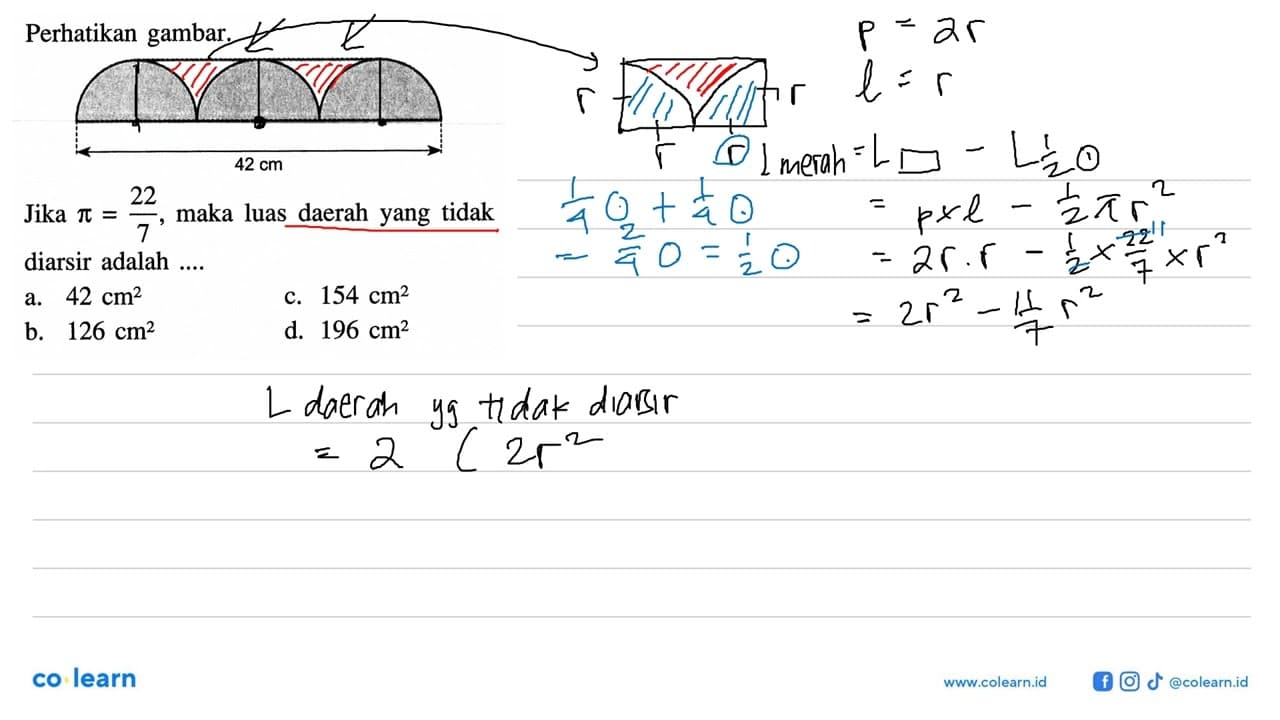 Perhatikan gambar.
42 cm
Jika π = 22/7, maka luas daerah yang tidak
diarsir adalah ....
a. 42 cm² c. 154 cm²
b. 126 cm² d. 196 cm²
r r
r r
p = 2r
l = r
L merah = L □ - L 1/2 ⊙
= p×l - 1/2 π r²
= 2r.r - 1/2 × 22/7 × r²
11
= 2r² - 11/7 r²
1/4 ⊙ + 1/4 ⊙
= 2/4 O = 1/2 ⊙
L daerah yg tidak diarsir
= 2 ( 2r²
co learn
www.colearn.id
@colearn.id